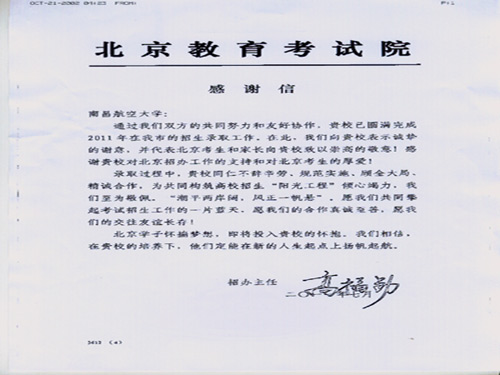 OCT-21-2002 04:23 FROM:
P:1
北京教育考试院
感谢信
南昌航空大学:
通过我们双方的共同努力和友好协作,贵校已圆满完成
2011年在我市的招生录取工作,在此,我们向贵校表示诚挚
的谢意,并代表北京考生和家长向贵校致以崇高的敬意!感
谢贵校对北京招办工作的支持和对北京考生的厚爱!
录取过程中,贵校同仁不辞辛劳,规范实施,顾全大局,
精诚合作,为共同构筑高校招生“阳光工程”倾心竭力,我
们至为敬佩。“潮平两岸阔,风正一帆悬”,愿我们共同擎
起考试招生工作的一片蓝天,愿我们的合作真诚至善,愿我
们的交往友谊长存!
北京学子怀揣梦想,即将投入贵校的怀抱,我们相信,
在贵校的培养下,他们定能在新的人生起点上扬帆起航。
招办主任